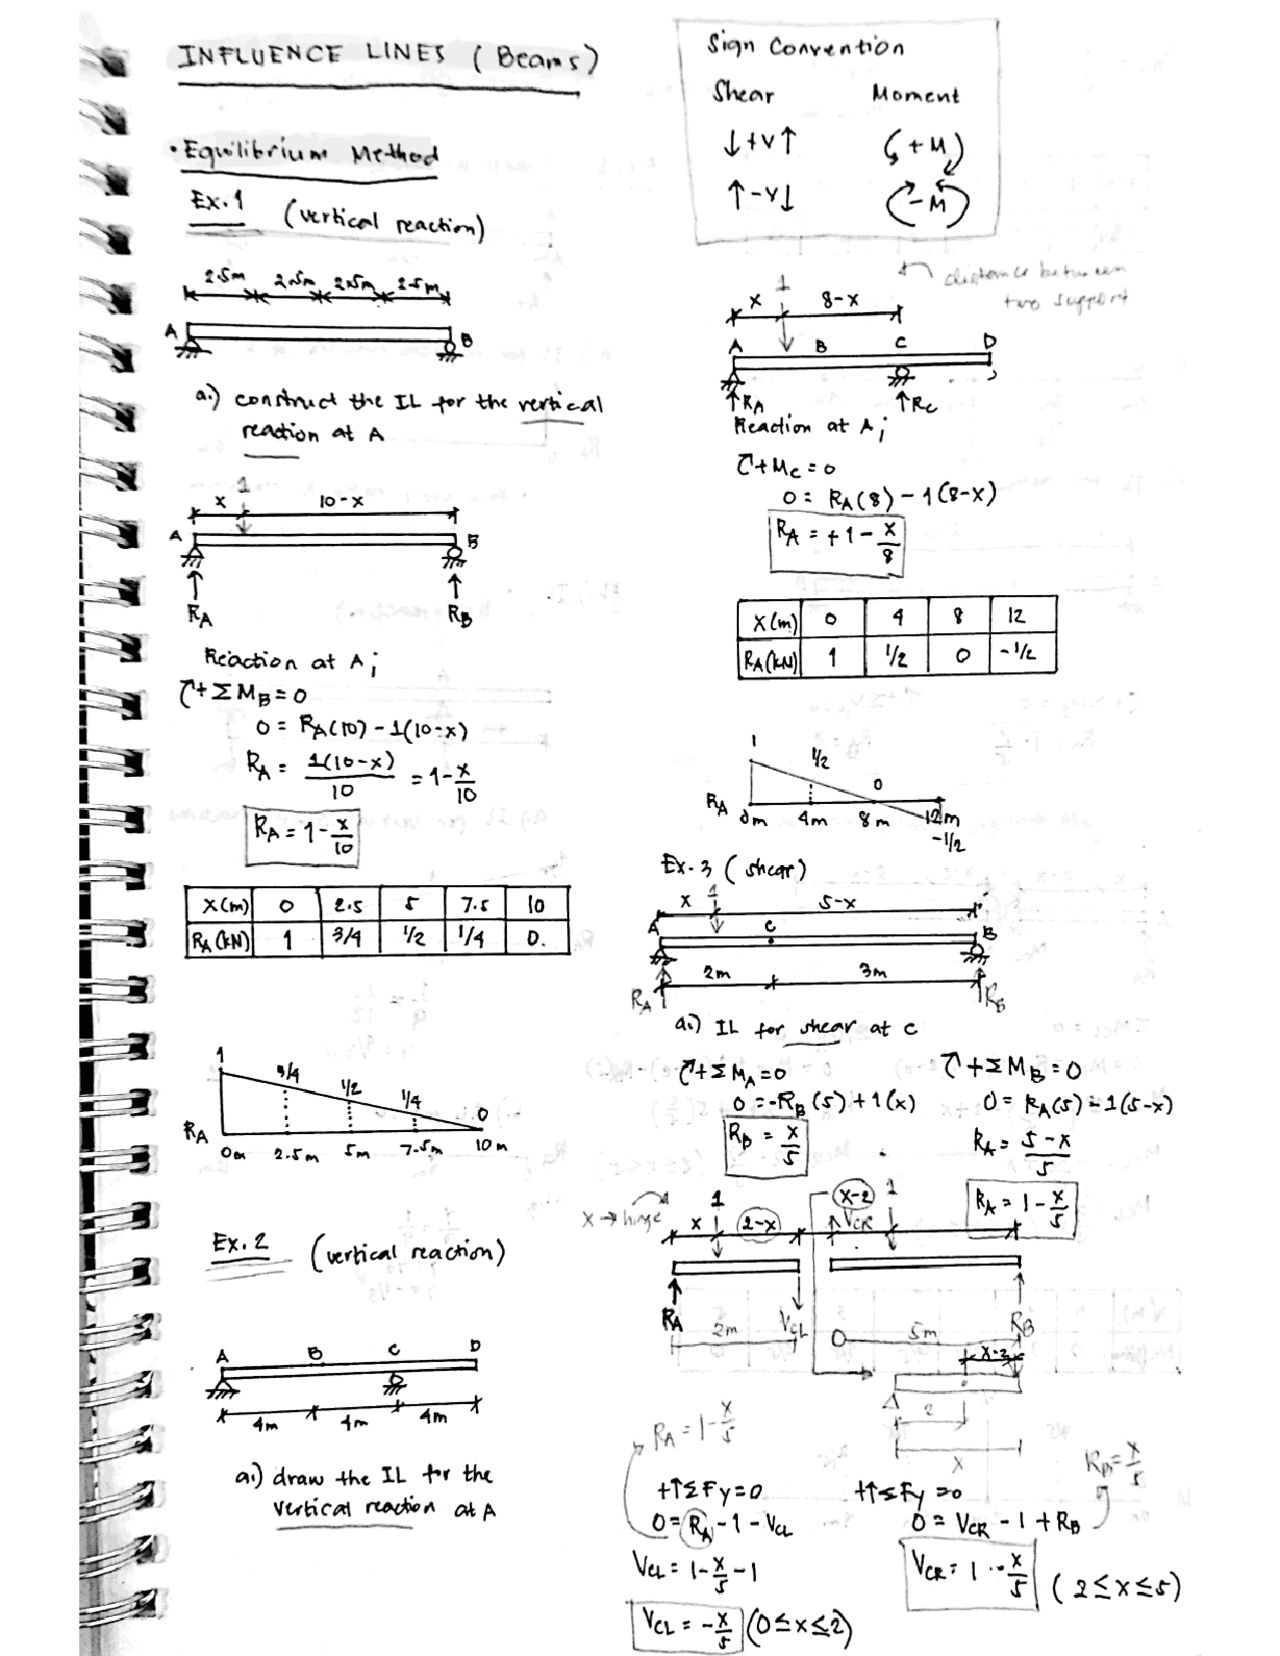 INFLUENCE LINES (Beams)
• Equilibrium Method
Ex. 1 (vertical reaction)
2.5m 2.5m 2.5m 2.5m
A B
a.) construct the IL for the vertical
reaction at A
1
x 10-x
A B
RA RB
Reaction at A;
↻+ΣMB=0
0 = RA(10) - 1(10-x)
RA = 1(10-x)/10 = 1-x/10
RA = 1-x/10
X(m) 0 2.5 5 7.5 10
RA(kN) 1 3/4 1/2 1/4 0.
1 3/4 1/2 1/4 0
RA
0m 2.5m 5m 7.5m 10m
Ex. 2 (vertical reaction)
A B C D
4m 4m 4m
a.) draw the IL for the
vertical reaction at A
Sign Convention
Shear Moment
↓+V↑ +M
↑-V↓ -M
distance between
two support
1
x 8-x
A B C D
↑RA ↑RC
Reaction at A;
↻+MC=0
0 = RA(8) - 1(8-x)
RA = +1-x/8
X(m) 0 4 8 12
RA(kN) 1 1/2 0 -1/2
1 1/2 0
RA
0m 4m 8m 12m
-1/2
Ex. 3 (shear)
1
x 5-x
A C B
2m 3m
RA RB
a.) IL for shear at C
↻+ΣMA=0
0=-RB(5)+1(x)
RB = x/5
↻+ΣMB=0
0= RA(5)-1(5-x)
RA= 5-x/5
RA= 1-x/5
x→hinge
x 1 2-x
RA VCL
2m
x-2 1
VCR
RB
5m
x-2
2
x
RA=1-x/5
+↑ΣFy=0
0=RA-1-VCL
VCL=1-x/5-1
VCL=-x/5 (0≤x≤2)
RB=x/5
+↑ΣFy=0
0=VCR-1+RB
VCR=1-x/5 (2≤x≤5)